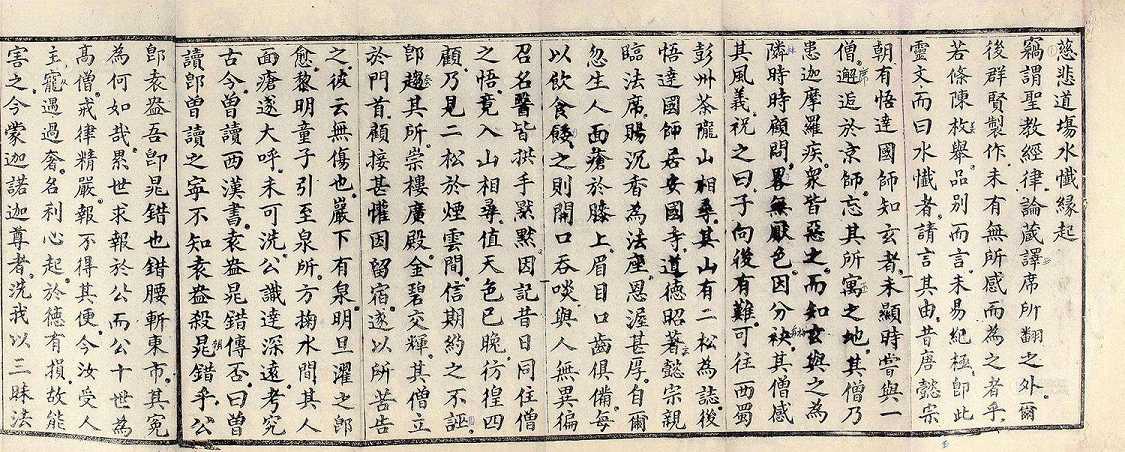 慈悲道場水懺緣起
竊謂聖教經律論藏譯席所翻之外爾
後群賢製作未有無所感而為之者乎
若條陳枚舉品別而言未易紀極即此
靈文而曰水懺者請言其由昔唐懿宗
朝有悟達國師知玄者未顯時嘗與一
僧邂逅於京師忘其所寓之地其僧乃
患迦摩羅疾眾皆惡之而知玄與之為
隣時時顧問畧無厭色因分袂其僧感
其風義祝之曰子向後有難可往西蜀
彭州茶隴山相尋其山有二松為誌後
悟達國師居安國寺道德昭著懿宗親
臨法席賜沉香為法座恩渥甚厚自爾
忽生人面瘡於膝上眉目口齒俱備每
以飲食餧之則開口吞啖與人無異徧
召名醫皆拱手默默因記昔日同住僧
之悟竟入山相尋值天色已晚彷徨四
顧乃見二松於煙雲間信期約之不誣
即趨其所崇樓廣殿金碧交輝其僧立
於門首顧接甚懽因留宿遂以所苦告
之彼云無傷也巖下有泉明旦濯之即
愈黎明童子引至泉所方掬水間其人
面瘡遂大呼未可洗公識達深遠考究
古今曾讀西漢書袁盎晁錯傳否曰曽
讀即曽讀之寧不知袁盎殺晁錯乎公
即袁盎吾即晁錯也錯腰斬東市其冤
為何如哉累世求報於公而公十世為
高僧戒律精嚴報不得其便今汝受人
主寵遇過奢名利心起於德有損故能
害之今蒙迦諾迦尊者洗我以三昧法